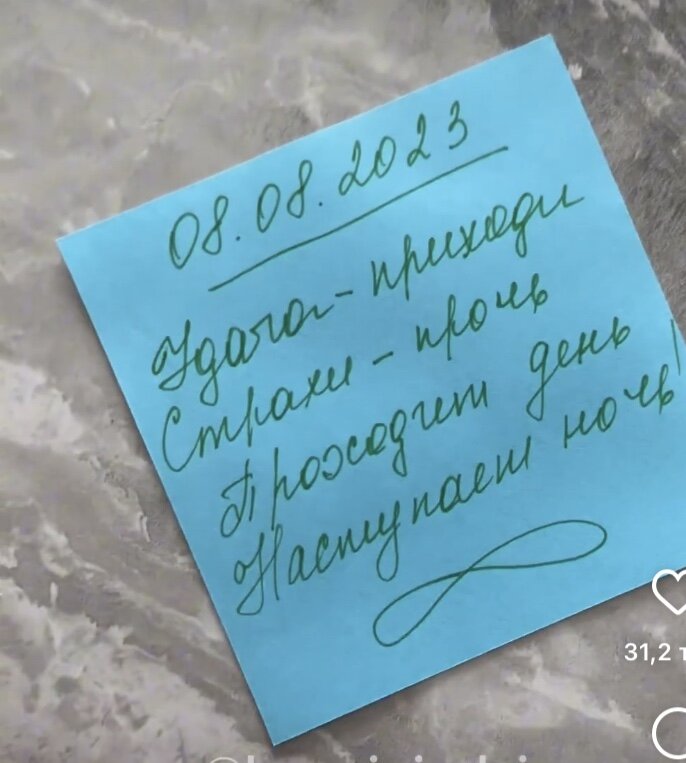 08.08.2023
Удача - приходи
Страхи - прочь
Проходит день
Наступает ночь!
31,2 т